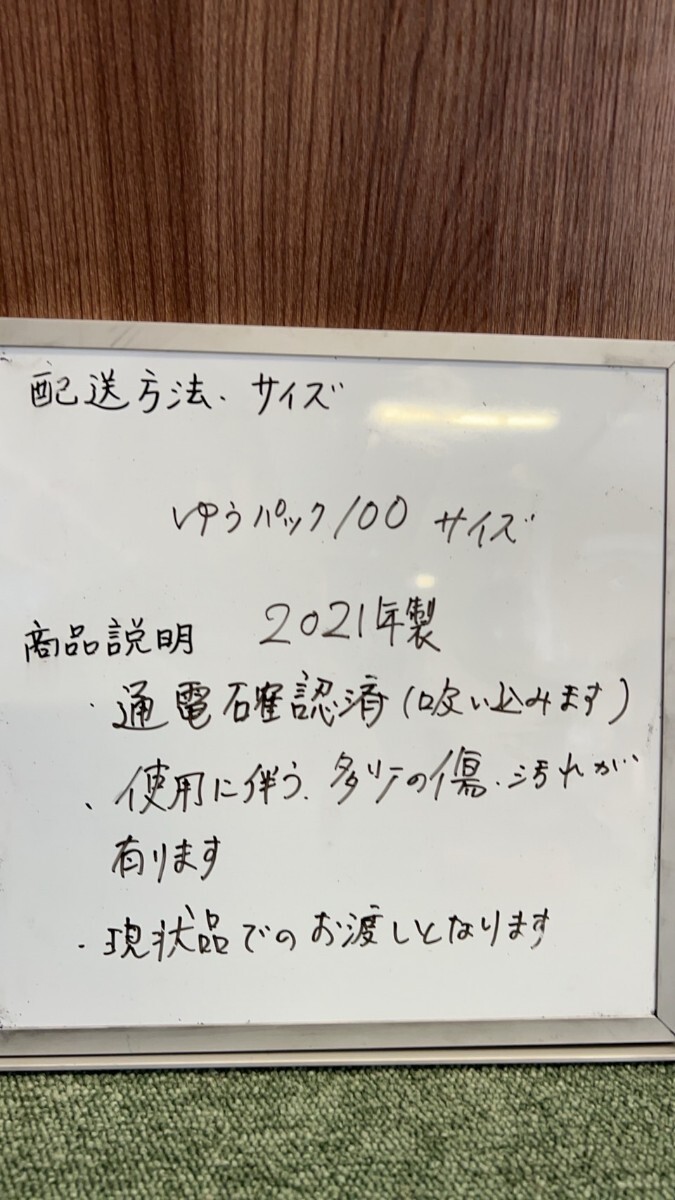 配送方法、サイズ
ゆうパック100 サイズ
商品説明 2021年製
・通電確認済(吸い込みます)
、使用に伴う、多少の傷、汚れが
有ります
・現状品でのお渡しとなります